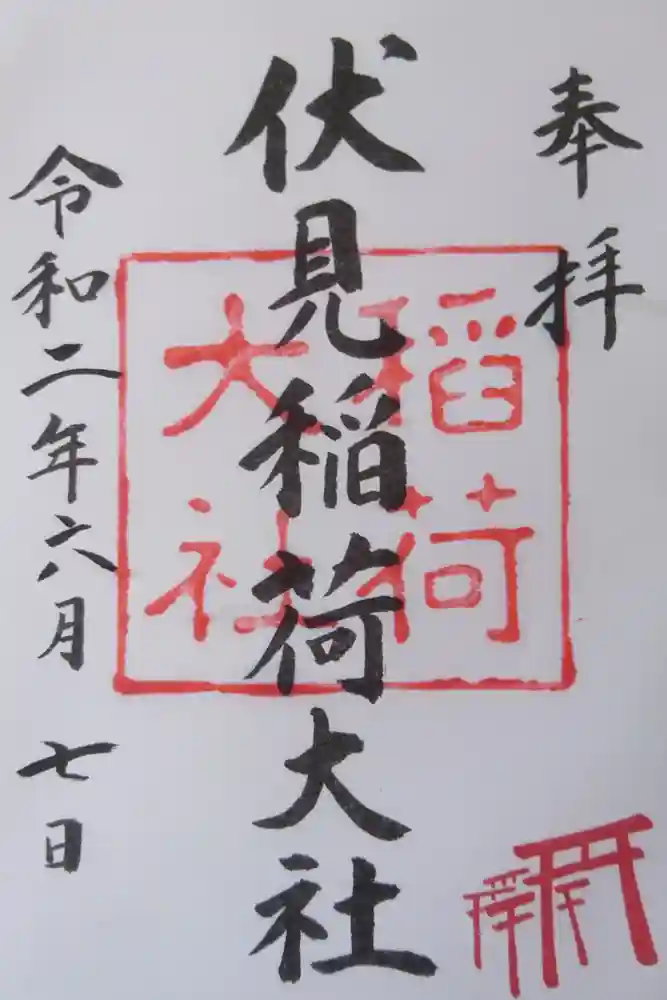 奉拝
伏見稲荷大社
稲荷
大社
令和二年六月七日